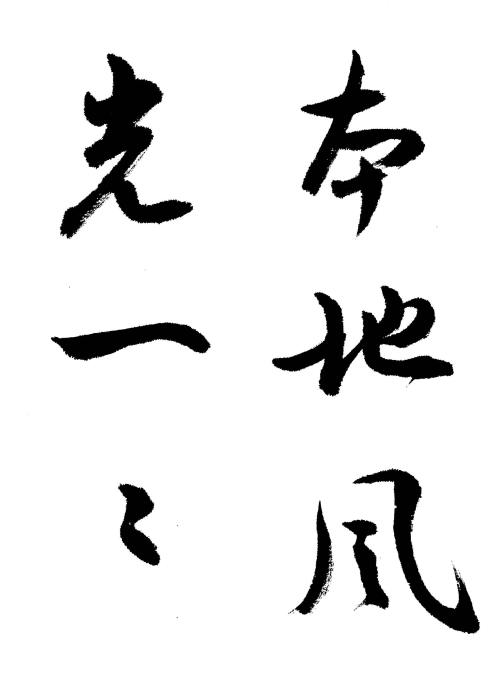 本地風
光一〻